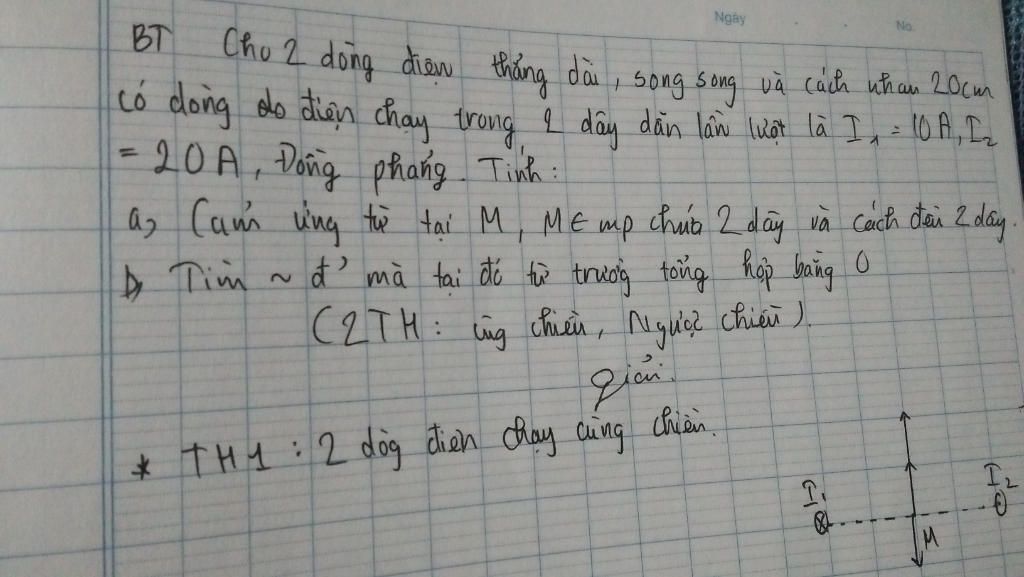 Ngày
No.
BT Cho 2 dòng điện thẳng dài, song song và cách nhau 20cm
có dòng do điện chạy trong 2 dây dẫn lần lượt là I₁ = 10A, I₂
= 20A, Đồng phẳng. Tính:
a, Cảm ứng từ tại M, M ∈ mp chứa 2 dây và cách đều 2 dây.
b, Tìm ~ đ' mà tại đó từ trường tổng hợp bằng 0
(2TH: cùng chiều, Ngược chiều).
giải.
* TH1: 2 dòg điện chạy cùng chiều.
I₁ I₂
M